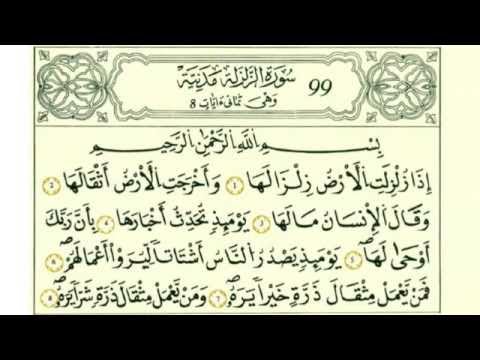 سُورَةُ الزَّلْزَلَةِ مَدَنِيَّةٌ 99
وَهِيَ ثَمَانِي ءَايَاتٍ 8
بِسْمِ اللَّهِ الرَّحْمَٰنِ الرَّحِيمِ
إِذَا زُلْزِلَتِ الْأَرْضُ زِلْزَالَهَا ۝ وَأَخْرَجَتِ الْأَرْضُ أَثْقَالَهَا
وَقَالَ الْإِنْسَانُ مَا لَهَا ۝ يَوْمَئِذٍ تُحَدِّثُ أَخْبَارَهَا ۝ بِأَنَّ رَبَّكَ
أَوْحَىٰ لَهَا ۝ يَوْمَئِذٍ يَصْدُرُ النَّاسُ أَشْتَاتًا لِيُرَوْا أَعْمَالَهُمْ
فَمَنْ يَعْمَلْ مِثْقَالَ ذَرَّةٍ خَيْرًا يَرَهُ ۝ وَمَنْ يَعْمَلْ مِثْقَالَ ذَرَّةٍ شَرًّا يَرَهُ